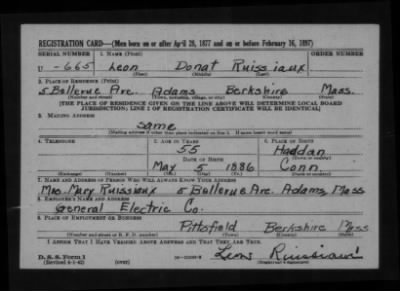 REGISTRATION CARD—(Men born on or after April 28, 1877 and on or before February 16, 1897)
SERIAL NUMBER 1. NAME (Print)
U -665 Leon Donat Ruissiaux
(First) (Middle) (Last)
2. PLACE OF RESIDENCE (Print)
5 Bellevue Ave. Adams Berkshire Mass.
(Number and street) (Town, township, village, or city) (County) (State)
[THE PLACE OF RESIDENCE GIVEN ON THE LINE ABOVE WILL DETERMINE LOCAL BOARD
JURISDICTION; LINE 2 OF REGISTRATION CERTIFICATE WILL BE IDENTICAL]
3. MAILING ADDRESS
Same
[Mailing address if other than place indicated on line 2. If same insert word same]
4. TELEPHONE 5. AGE IN YEARS 6. PLACE OF BIRTH
55 Haddan
DATE OF BIRTH (Town or county)
May 5 1886 Conn.
(Exchange) (Number) (Mo.) (Day) (Yr.) (State or country)
7. NAME AND ADDRESS OF PERSON WHO WILL ALWAYS KNOW YOUR ADDRESS
Mrs. Mary Ruissiaux 5 Bellevue Ave. Adams, Mass
8. EMPLOYER'S NAME AND ADDRESS
General Electric Co.
9. PLACE OF EMPLOYMENT OR BUSINESS
Pittsfield Berkshire Mass
(Number and street or R. F. D. number) (Town) (County) (State)
I AFFIRM THAT I HAVE VERIFIED ABOVE ANSWERS AND THAT THEY ARE TRUE.
D. S. S. Form 1
(Revised 4-1-42) (over)
Leon Ruissiaux
(Registrant's signature)